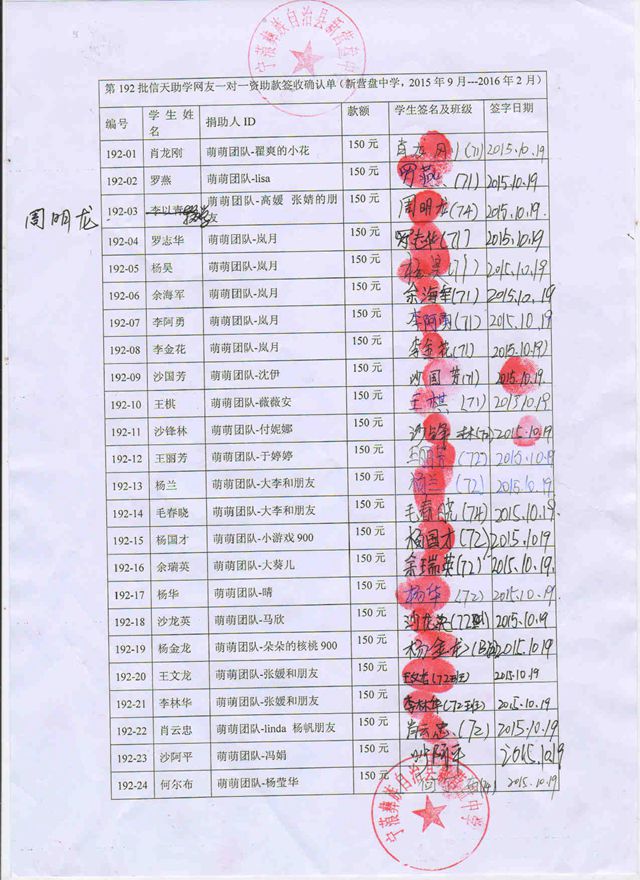 宁蒗彝族自治县新营盘中学
第 192 批信天助学网友一对一资助款签收确认单（新营盘中学，2015 年 9 月---2016 年 2 月）
编号 学生姓名 捐助人 ID 款额 学生签名及班级 签字日期
192-01 肖龙刚 萌萌团队-翟爽的小花 150 元 肖龙刚 (71) 2015.10.19
192-02 罗燕 萌萌团队-lisa 150 元 罗燕 (71) 2015.10.19
周明龙 192-03 萌萌团队-高媛 张婧的朋友 150 元 周明龙 (74) 2015.10.19
192-04 罗志华 萌萌团队-岚月 150 元 罗志华 (71) 2015.10.19
192-05 杨昊 萌萌团队-岚月 150 元 杨昊 (71) 2015.10.19
192-06 余海军 萌萌团队-岚月 150 元 余海军 (71) 2015.10.19
192-07 李阿勇 萌萌团队-岚月 150 元 李阿勇 (71) 2015.10.19
192-08 李金花 萌萌团队-岚月 150 元 李金花 (71) 2015.10.19
192-09 沙国芳 萌萌团队-沈伊 150 元 沙国芳 (71) 2015.10.19
192-10 王棋 萌萌团队-薇薇安 150 元 王棋 (71) 2015.10.19
192-11 沙锋林 萌萌团队-付妮娜 150 元 沙锋林 2015.10.19
192-12 王丽芳 萌萌团队-于婷婷 150 元 王丽芳 (72) 2015.10.19
192-13 杨兰 萌萌团队-大李和朋友 150 元 杨兰 (72) 2015.10.19
192-14 毛春晓 萌萌团队-大李和朋友 150 元 毛春晓 (74) 2015.10.19
192-15 杨国才 萌萌团队-小游戏 900 150 元 杨国才 (72) 2015.1019
192-16 余瑞英 萌萌团队-大葵儿 150 元 余瑞英 (72) 2015.10.19
192-17 杨华 萌萌团队-晴 150 元 杨华 (72) 2015.10.19
192-18 沙龙英 萌萌团队-马欣 150 元 沙龙英 (72班) 2015.10.19
192-19 杨金龙 萌萌团队-朵朵的核桃 900 150 元 杨金龙 2015.10.19
192-20 王文龙 萌萌团队-张媛和朋友 150 元 王文龙 (72班) 2015.10.19
192-21 李林华 萌萌团队-张媛和朋友 150 元 李林华 (72班) 2015.10.19
192-22 肖云忠 萌萌团队-linda 杨帆朋友 150 元 肖云忠 (72) 2015.10.19
192-23 沙阿平 萌萌团队-冯娟 150 元 沙阿平 2015.10.19
192-24 何尔布 萌萌团队-杨莹华 150 元 何 2015.10.19
宁蒗彝族自治县新营盘中学